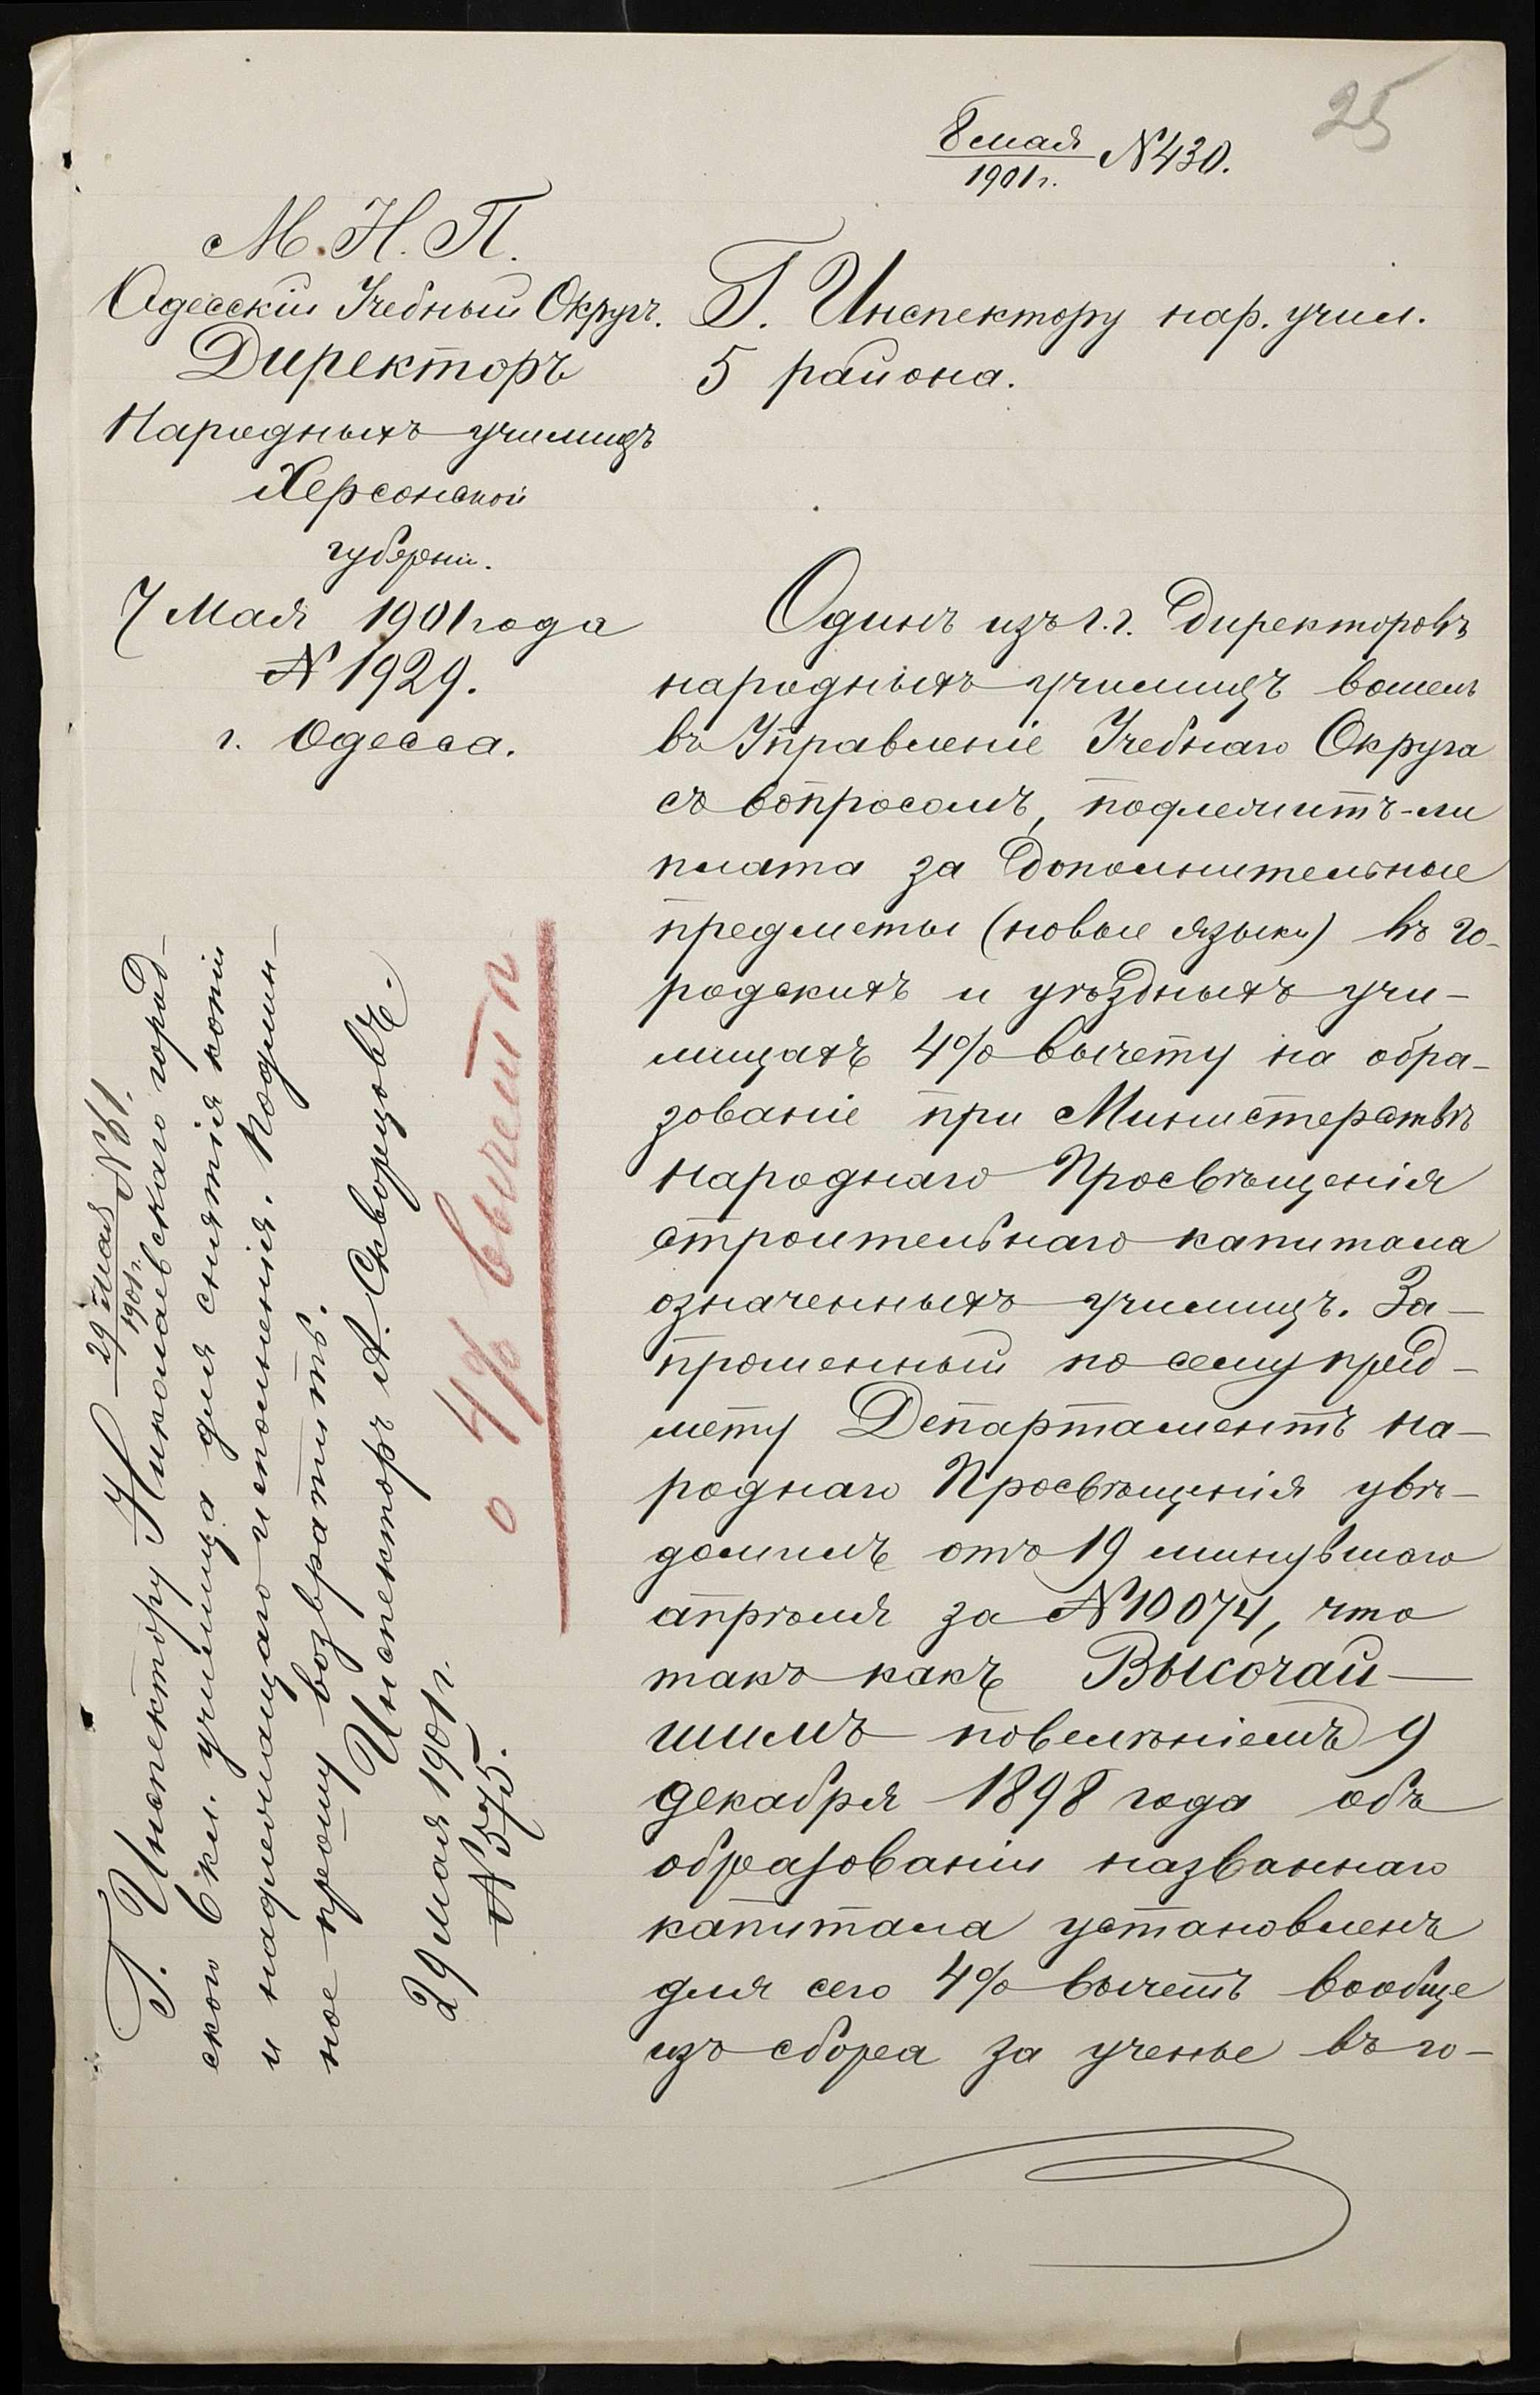 25
8 мая
1901 г.
№ 430.
М. Н. П.
Одесскій Учебный Округъ.
Директоръ
Народныхъ училищъ
Херсонской
губерніи.
7 Мая 1901 года
№ 1929.
г. Одесса.
Г. Инспектору нар. учил.
5 района.
Одинъ изъ г.г. Директоровъ
народныхъ училищъ вошелъ
въ Управленіе Учебнаго Округа
съ вопросомъ, подлежитъ-ли
плата за дополнительные
предметы (новые языки) въ го-
родскихъ и уѣздныхъ учи-
лищахъ 4% вычету на обра-
зованіе при Министерствѣ
Народнаго Просвѣщенія
строительнаго капитала
означенныхъ училищъ. За-
прошенный по сему пред-
мету Департаментъ На-
роднаго Просвѣщенія увѣ-
домилъ отъ 19 минувшаго
апрѣля за № 10074, что
такъ какъ Высочай-
шимъ повелѣніемъ 9
декабря 1898 года объ
образованіи названнаго
капитала установленъ
для сего 4% вычетъ вообще
изъ сбора за ученье въ го-
29 мая
1901 г.
№ 61.
Г. Инспектору Николаевскаго город-
ского 6 кл. училища для снятія копіи
и надлежащаго исполненія. Подлин-
ное прошу возвратить.
Инспекторъ А. Скворцовъ.
29 мая 1901 г.
№ 575.
о 4% вычетѣ